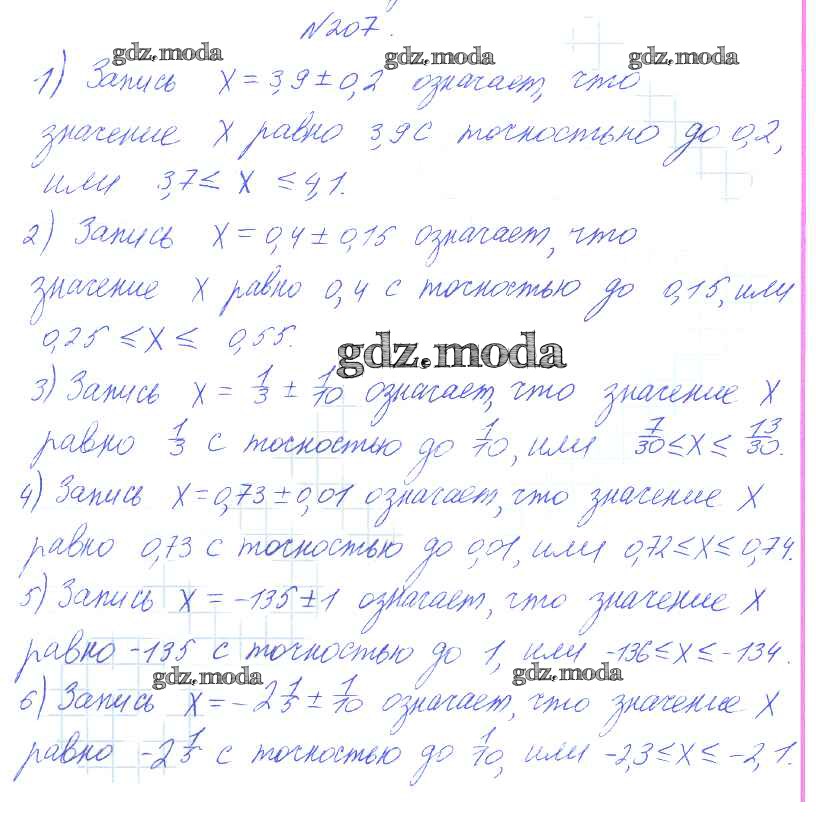 №207.
gdz.moda gdz.moda gdz.moda
1) Запись x = 3,9 ± 0,2 означает, что
значение x равно 3,9 с точностью до 0,2,
или 3,7 ≤ x ≤ 4,1.
2) Запись x = 0,4 ± 0,15 означает, что
значение x равно 0,4 с точностью до 0,15, или
0,25 ≤ x ≤ 0,55.
gdz.moda
3) Запись x = 1/3 ± 1/10 означает, что значение x
равно 1/3 с точностью до 1/10, или 7/30 ≤ x ≤ 13/30.
4) Запись x = 0,73 ± 0,01 означает, что значение x
равно 0,73 с точностью до 0,01, или 0,72 ≤ x ≤ 0,74.
5) Запись x = -135 ± 1 означает, что значение x
равно -135 с точностью до 1, или -136 ≤ x ≤ -134.
gdz.moda gdz.moda
6) Запись x = -2 1/5 ± 1/10 означает, что значение x
равно -2 1/5 с точностью до 1/10, или -2,3 ≤ x ≤ -2,1.